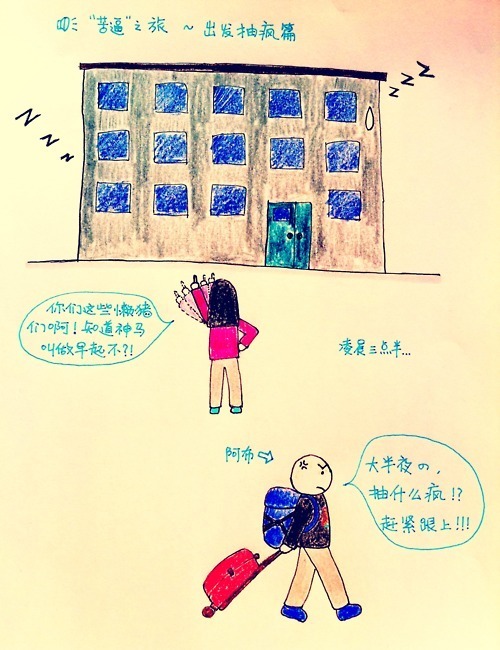 "苦逼"之旅 ~ 出发抽疯篇
z z Z
Z Z z z
你们这些懒猪
们啊！知道神马
叫做早起不?!
凌晨三点半...
阿布
大半夜の，
抽什么疯!?
赶紧跟上!!!